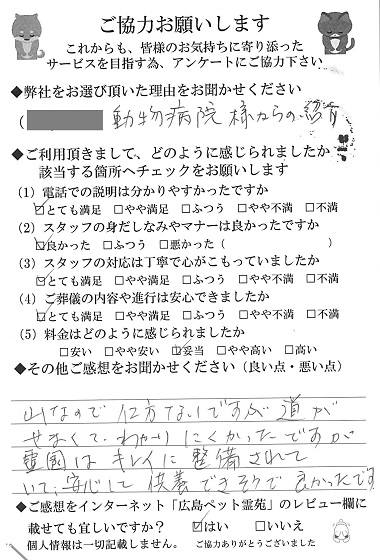 ご協力お願いします
これからも、皆様のお気持ちに寄り添った
サービスを目指す為、アンケートにご協力下さい
◆弊社をお選び頂いた理由をお聞かせください
( 動物病院様からの紹介
◆ご利用頂きまして、どのように感じられましたか
該当する箇所へチェックをお願いします
(1) 電話での説明は分かりやすかったですか
☑とても満足 □やや満足 □ふつう □やや不満 □不満
(2) スタッフの身だしなみやマナーは良かったですか
☑良かった □ふつう □悪かった ( )
(3) スタッフの対応は丁寧で心がこもっていましたか
☑とても満足 □やや満足 □ふつう □やや不満 □不満
(4) ご葬儀の内容や進行は安心できましたか
☑とても満足 □やや満足 □ふつう □やや不満 □不満
(5) 料金はどのように感じられましたか
□安い □やや安い ☑妥当 □やや高い □高い
◆その他ご感想をお聞かせください (良い点・悪い点)
山なので仕方ないですが道が
せまくて、わかりにくかったですが
霊園はキレイに整備されて
いて、安心して供養できそうで良かったです
◆ご感想をインターネット「広島ペット霊苑」のレビュー欄に
載せても宜しいですか？ ☑はい □いいえ
個人情報は一切記載しません。 ご協力ありがとうございました